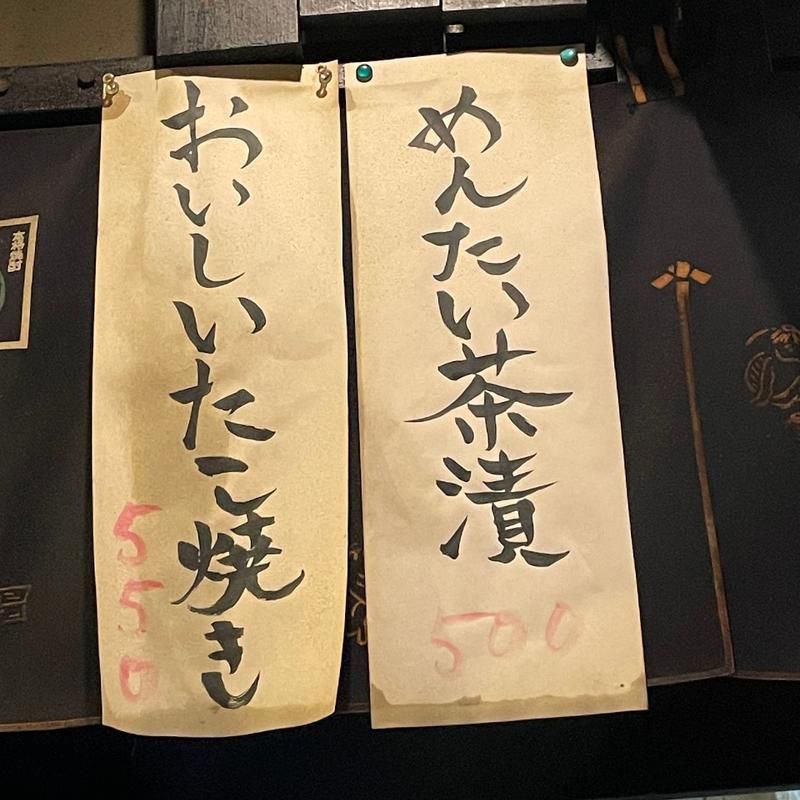 めんたい茶漬
500
おいしいたこ焼き
550